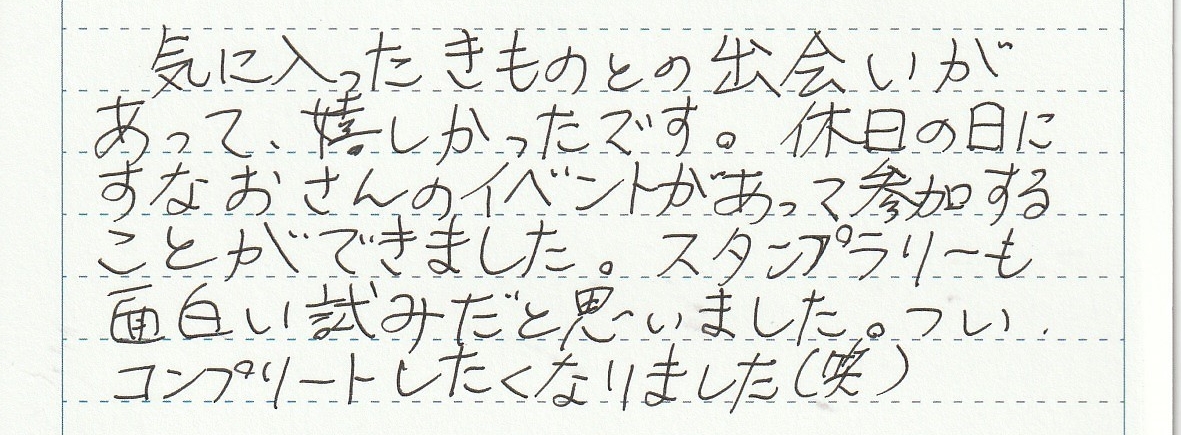 気に入ったきものとの出会いが
あって、嬉しかったです。休日の日に
すなおさんのイベントがあって参加する
ことができました。スタンプラリーも
面白い試みだと思いました。つい、
コンプリートしたくなりました(笑)